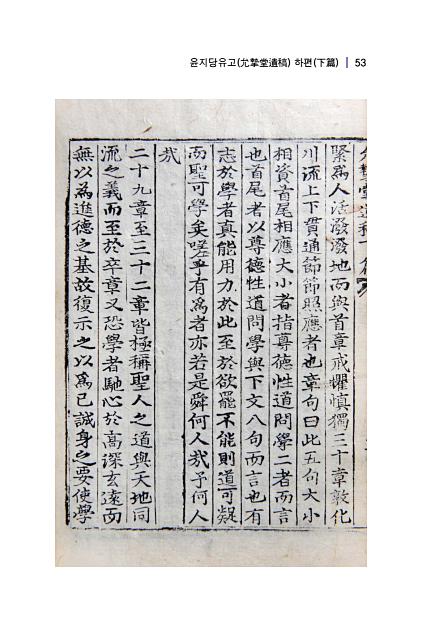 윤지당유고(允摯堂遺稿) 하편(下篇) | 53
緊爲人活潑潑地而與首章戒懼愼獨三十章敦化
川流上下貫通節節照應者也章句曰此五句大小
相資首尾相應大小者指尊德性道問學二者而言
也首尾者以尊德性道問學與下文八句而言也有
志於學者眞能用力於此至於欲罷不能則道可凝
而聖可學矣嗟乎有爲者亦若是舜何人哉予何人
哉
二十九章至三十二章皆極稱聖人之道與天地同
流之義而至於卒章又恐學者馳心於高深玄遠而
無以為進德之基故復示之以爲己誠身之要使學